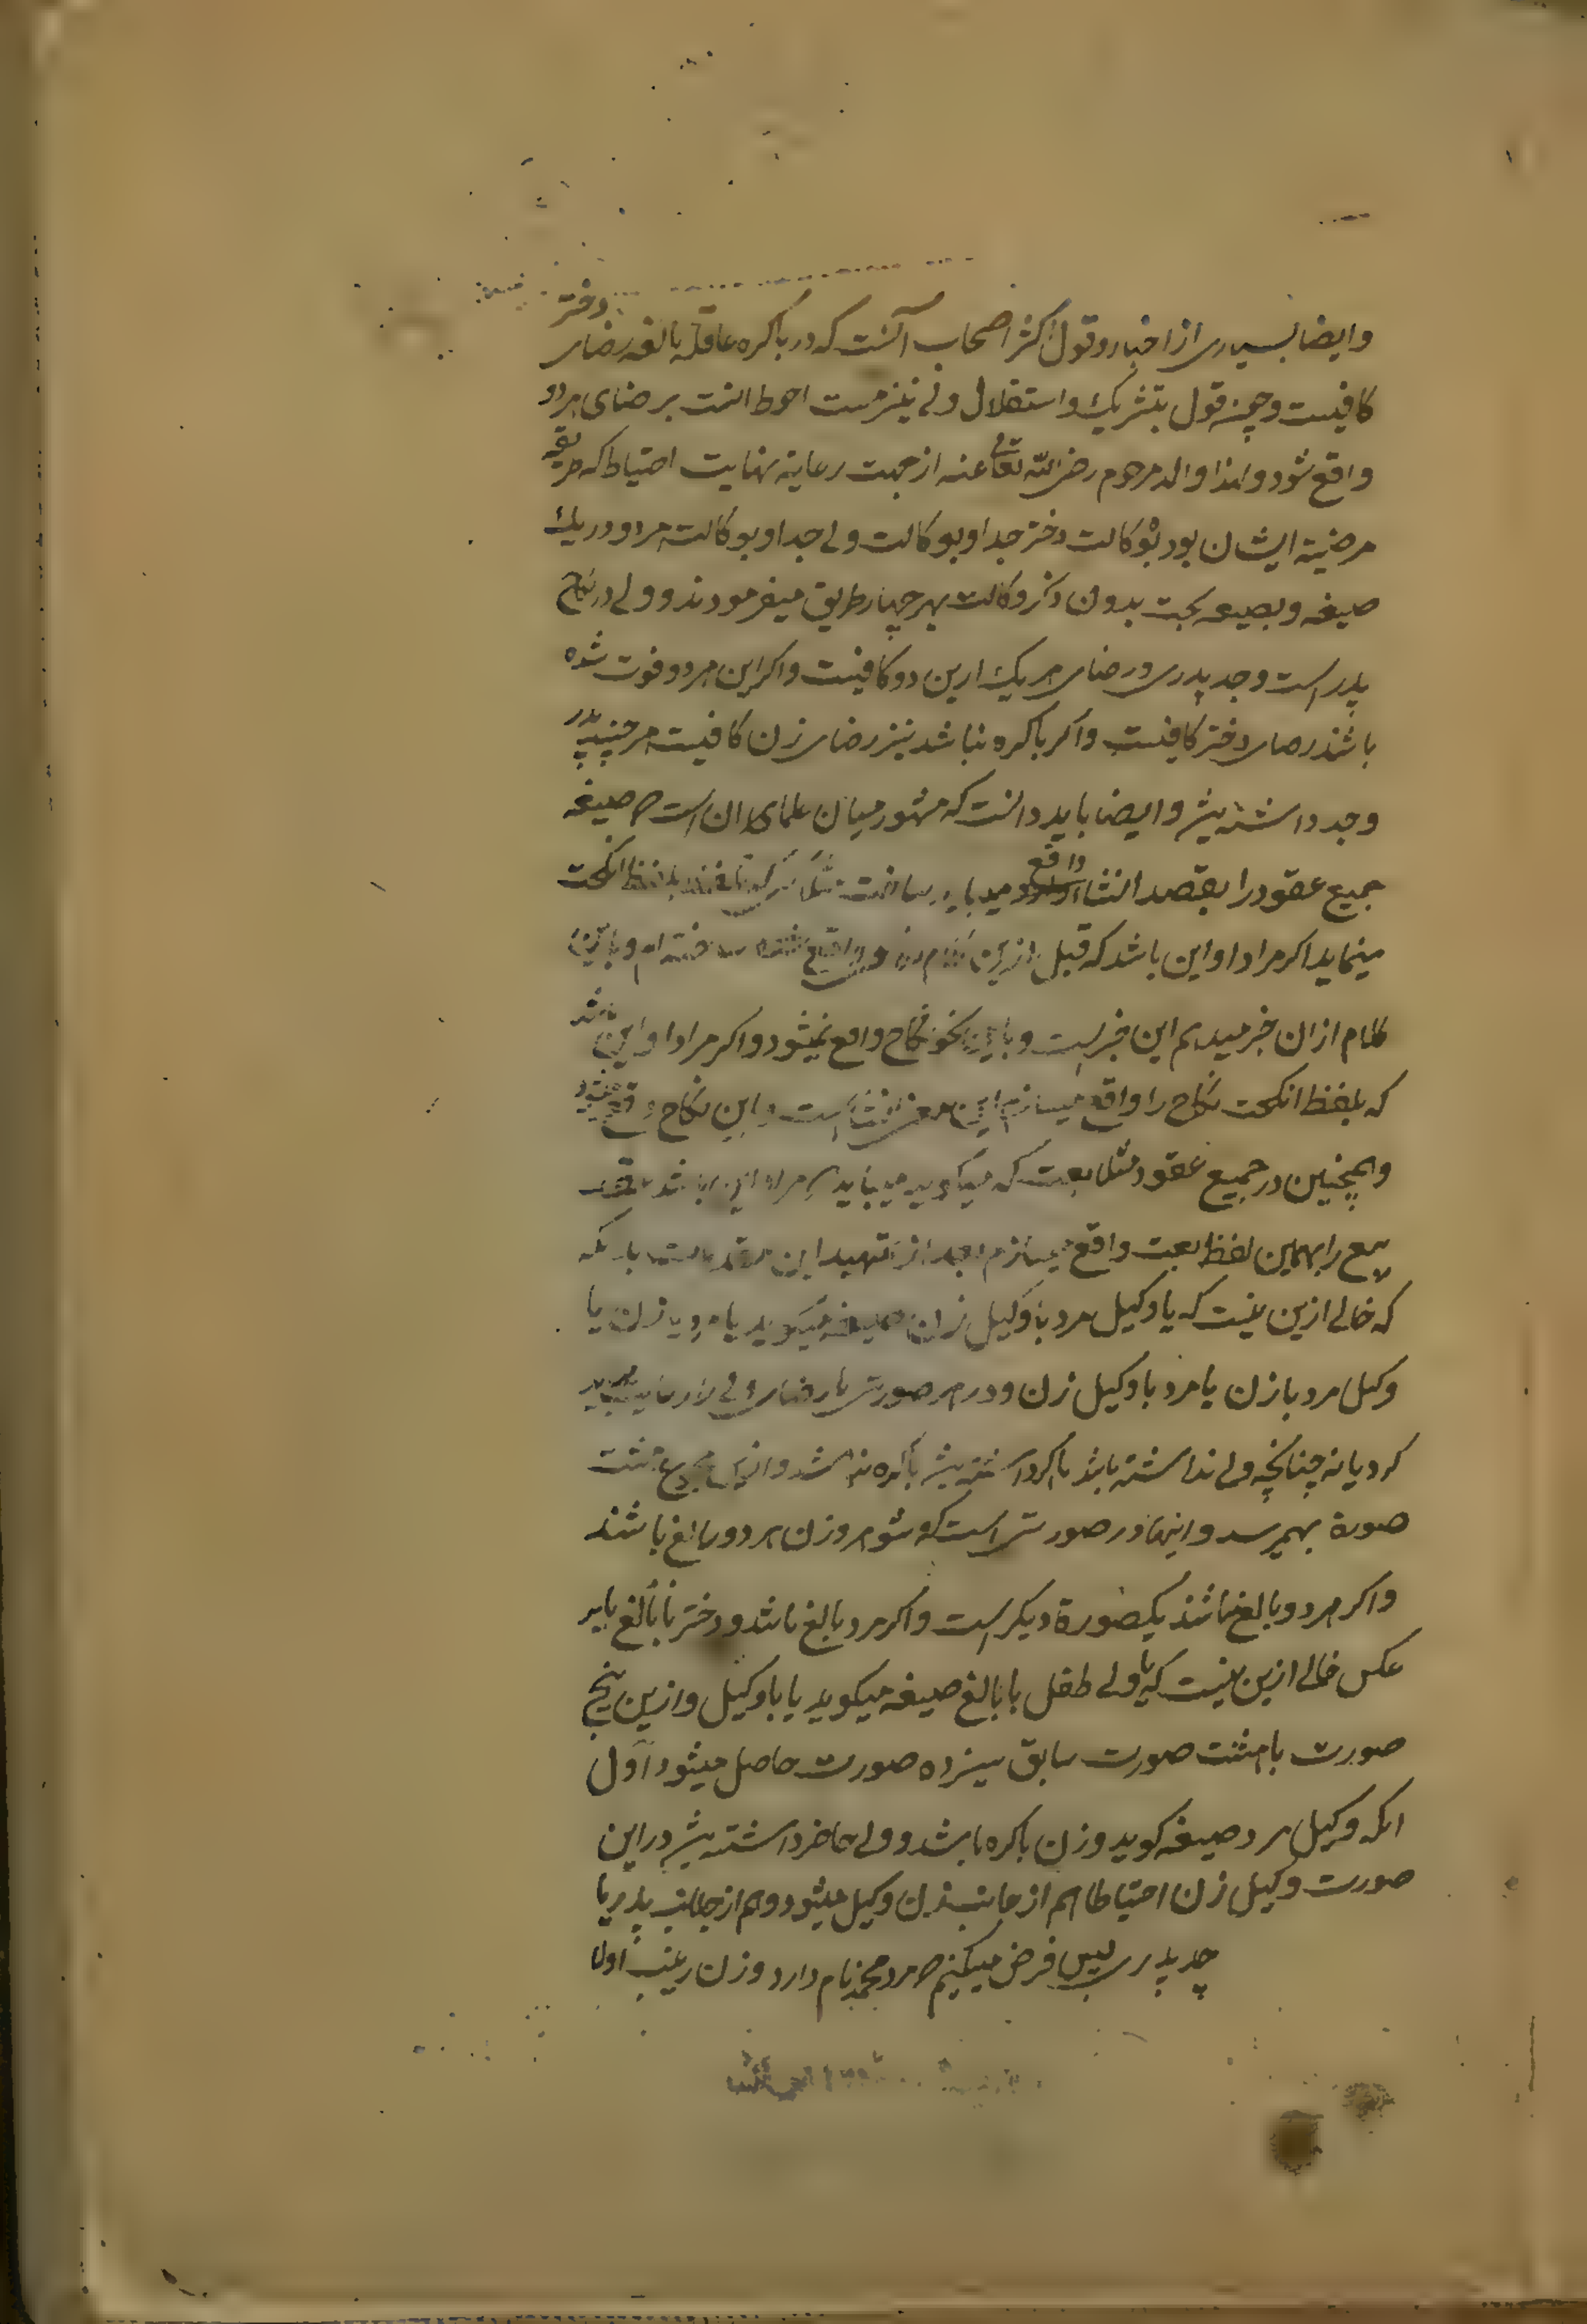 وایضا بسیاری از اخبار و قول اکثر اصحاب آنست که در باکره عاقله بالغه رضای دختر
کافیست و چون قول بتشریک و استقلال ولی نیز هست احوط انست برضای هردو
واقع شود و لهذا والد مرحوم رضی الله تعالی عنه از جهت رعایة نهایت احتیاط که طریقه
مرضیة ایشان بود بوکالت دختر جدا و بوکالت ولی جدا و بوکالت هر دو در یک
صیغه و بصیغه بحت بدون ذکر وکالت بهر چهار طریق میفرمودند و ولی در نکاح
پدر است و جد پدری و رضای هر یک ازین دو کافیست و اکر این هر دو فوت شده
باشند رضای دختر کافیست و اکر باکره نباشد نیز رضای زن کافیست هر چند پدر
و جد داشته باشد و ایضا باید دانست که مشهور میان علمای ان است که صیغه
جمیع عقود را بقصد انشا واقع میباید ساخت مثلا بلفظ انکحت
مینماید اکر مراد او این باشد که قبل ازین واقع ساخته ام و باین
کلام از ان خبر میدهم این خبر است و باین نحو نکاح واقع نمیشود و اکر مراد او این باشد
که بلفظ انکحت نکاح را واقع میسازم این معنی انشا است و این نکاح واقع میشود
و همچنین در جمیع عقود مثلا بعت که میکوید میباید که مراد این باشد که
بیع را بهمین لفظ بعت واقع میسازم بعد از تمهید این مقدمات بدانکه
که خالی ازین نیست که یا وکیل مرد با وکیل زن صیغه میکوید یا مرد با زن یا
وکیل مرد با زن یا مرد با وکیل زن و در هر صورتی یا رضای ولی در کار میباید
کرد یا نه چنانچه ولی نداشته باشد یا اکر داشته باشد باکره نباشد و ازین مجموع هشت
صورة بهمرسد و اینها در صورتی است که شوهر و زن هر دو بالغ باشند
و اکر هر دو بالغ نباشند یکصورة دیکر است و اکر مرد بالغ باشد و دختر نابالغ یا بر
عکس خالی ازین نیست که یا ولی طفل با بالغ صیغه میکوید یا با وکیل و ازین پنج
صورت با هشت صورت سابق سیزده صورت حاصل میشود اول
انکه وکیل مرد صیغه کوید و زن باکره باشد و ولی حاضر داشته باشد در این
صورت وکیل زن احتیاطا هم از جانب زن وکیل میشود و هم از جانب پدر یا
جد پدری پس فرض میکنیم که مرد محمد نام دارد و زن زینب اولا